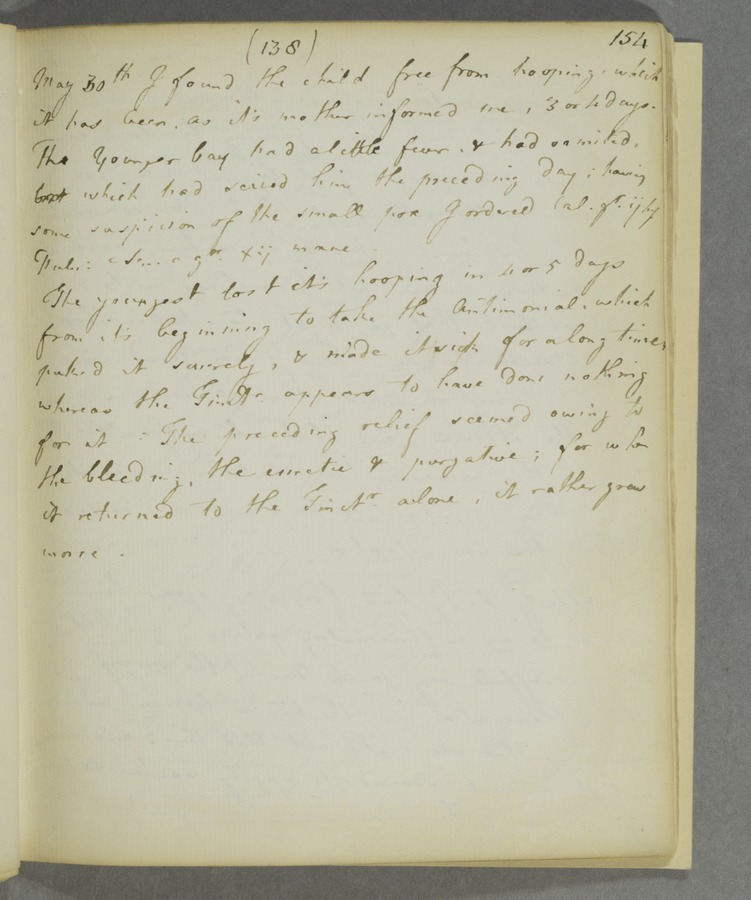 (138)
154
May 30th I found the child free from hooping, which
it has been, as it's mother informed me, 3 or 4 days.
The Younger boy had a little fever & had vomited,
which had seized him the preceding day; having
some suspicion of the small pox I ordered Cal. gr. ij
mane.
The youngest lost it's hooping in 4 or 5 days
from it's beginning to take the Antimonial, which
puked it surely, & made it sick for a long time,
whereas the Tinctr appears to have done nothing
for it: The preceding relief seemed owing to
the bleeding, the emetic & purgative; for when
it returned to the Tinctr alone, it rather grew
worse.